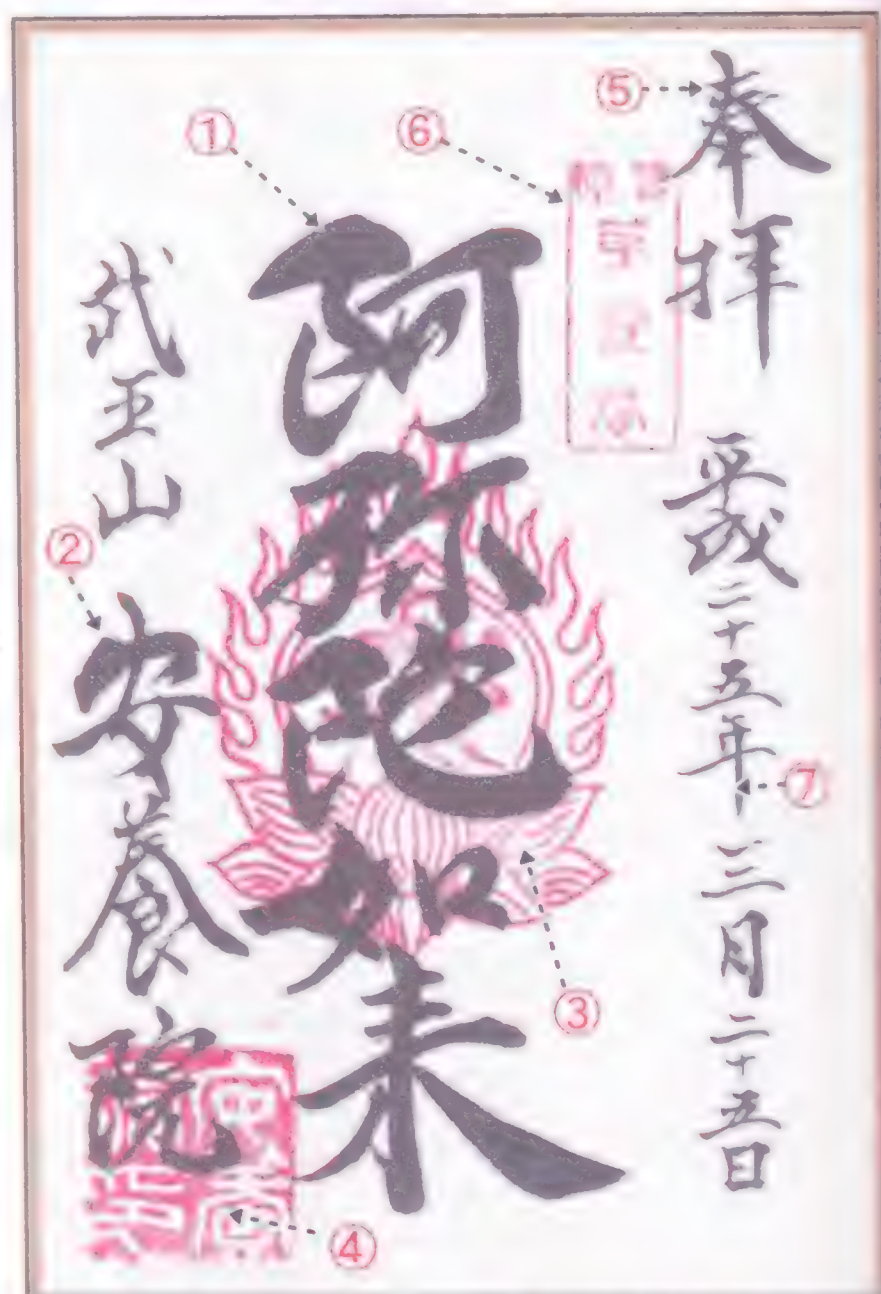 ⑤
奉拝
平成二十五年三月二十五日
⑦
⑥
①
阿弥陀如来
③
武王山
②
安養院
④